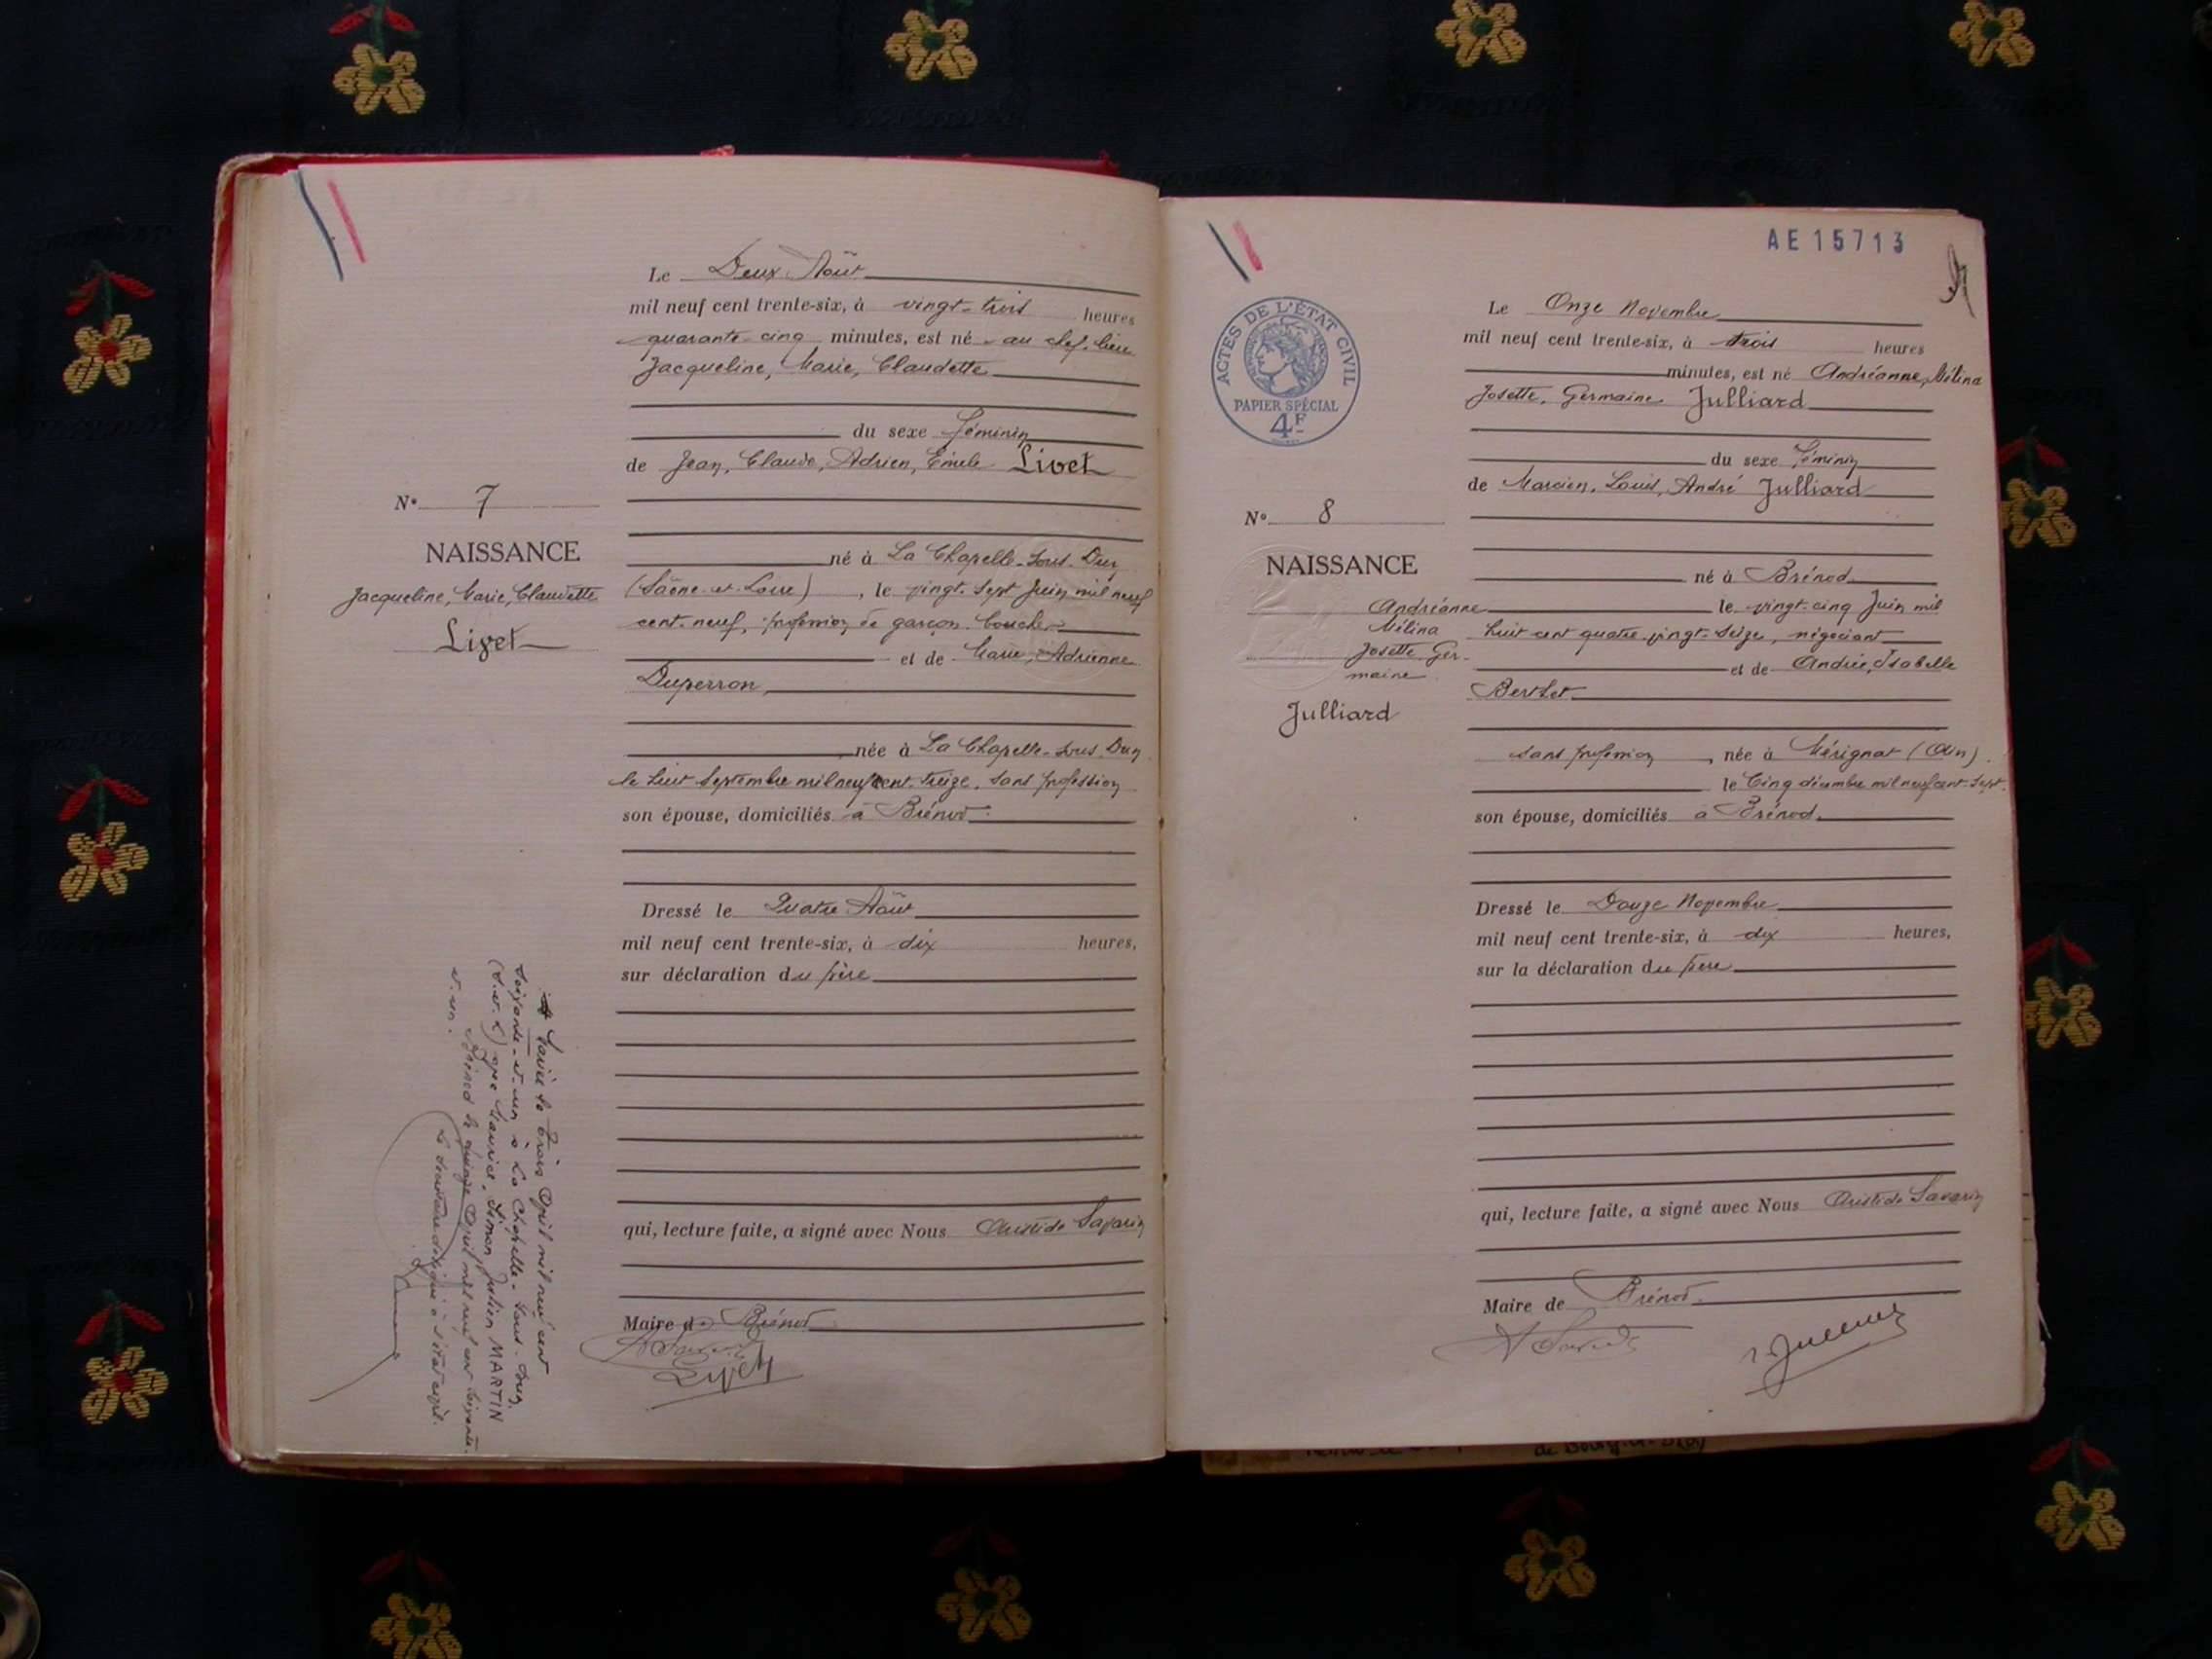 Le Deux Août
mil neuf cent trente-six, à vingt-trois heures
quarante-cinq minutes, est né au chef-lieu
Jacqueline, Marie, Claudette
du sexe féminin
de Jean, Claude, Adrien, Emile Livet
N° 7
NAISSANCE
Jacqueline, Marie, Claudette
Livet
né à La Chapelle-sous-Dun
(Saône-et-Loire), le vingt-sept Juin mil neuf
cent-neuf, profession de garçon-boucher
et de Marie, Adrienne
Duperron,
née à La Chapelle-sous-Dun
le huit Septembre mil neuf cent treize, sans profession
son épouse, domiciliés à Brénod
Dressé le Quatre Août
mil neuf cent trente-six, à dix heures,
sur déclaration du père
qui, lecture faite, a signé avec Nous Aristide Savarin
Maire de Brénod
Livet
Mariée le trois Avril mil neuf cent
soixante-et-un à La Chapelle-sous-Dun
(S.-et-L.) avec Maurice, Simon, Julien MARTIN
Brénod le quinze Avril mil neuf cent soixante-
et-un.
AE15713
ACTES DE L'ÉTAT CIVIL
PAPIER SPÉCIAL
4F
Le Onze Novembre
mil neuf cent trente-six, à trois heures
minutes, est né Andréanne, Mélina
Josette, Germaine Julliard
du sexe féminin
de Marcien, Louis, André Julliard
N° 8
NAISSANCE
Andréanne
Mélina
Josette Ger-
maine
Julliard
né à Brénod
le vingt-cinq Juin mil
huit cent quatre-vingt-seize, négociant
et de Andrée, Isabelle
Berthet
sans profession, née à Mérignat (Ain).
le Cinq décembre mil neuf cent-sept.
son épouse, domiciliés à Brénod.
Dressé le Douze Novembre
mil neuf cent trente-six, à dix heures,
sur la déclaration du père
qui, lecture faite, a signé avec Nous Aristide Savarin
Maire de Brénod.